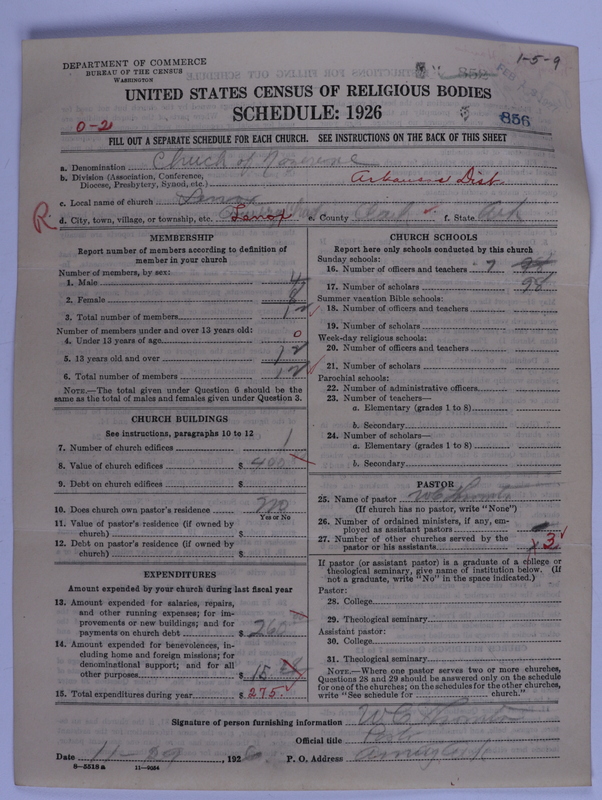 DEPARTMENT OF COMMERCE
BUREAU OF THE CENSUS
WASHINGTON
1-5-9
UNITED STATES CENSUS OF RELIGIOUS BODIES
SCHEDULE: 1926
856
0-2
FILL OUT A SEPARATE SCHEDULE FOR EACH CHURCH. SEE INSTRUCTIONS ON THE BACK OF THIS SHEET
a. Denomination Church of Nazerene
b. Division (Association, Conference, Diocese, Presbytery, Synod, etc.) Arkansas Dist.
c. Local name of church Lenox
R.
d. City, town, village, or township, etc. Lenox e. County Clark f. State Ark
MEMBERSHIP
Report number of members according to definition of
member in your church
Number of members, by sex:
1. Male 4
2. Female 8
3. Total number of members 12
Number of members under and over 13 years old:
4. Under 13 years of age 0
5. 13 years old and over 12
6. Total number of members 12
NOTE.—The total given under Question 6 should be
same as the total of males and females given under Question 3.
CHURCH BUILDINGS
See instructions, paragraphs 10 to 12
7. Number of church edifices 1
8. Value of church edifices $ 400
9. Debt on church edifices $
10. Does church own pastor's residence no
Yes or No
11. Value of pastor's residence (if owned by
church) $
12. Debt on pastor's residence (if owned by
church) $
EXPENDITURES
Amount expended by your church during last fiscal year
13. Amount expended for salaries, repairs,
and other running expenses; for im-
provements or new buildings; and for
payments on church debt $ 260
14. Amount expended for benevolences, in-
cluding home and foreign missions; for
denominational support; and for all
other purposes $ 15
15. Total expenditures during year $ 275
CHURCH SCHOOLS
Report here only schools conducted by this church
Sunday schools:
16. Number of officers and teachers 7
17. Number of scholars 98
Summer vacation Bible schools:
18. Number of officers and teachers
19. Number of scholars
Week-day religious schools:
20. Number of officers and teachers
21. Number of scholars
Parochial schools:
22. Number of administrative officers
23. Number of teachers—
a. Elementary (grades 1 to 8)
b. Secondary
24. Number of scholars—
a. Elementary (grades 1 to 8)
b. Secondary
PASTOR
25. Name of pastor
(If church has no pastor, write "None")
26. Number of ordained ministers, if any, em-
ployed as assistant pastors
27. Number of other churches served by the
pastor or his assistants 3
If pastor (or assistant pastor) is a graduate of a college or
theological seminary, give name of institution below. (If
not a graduate, write "No" in the space indicated.)
Pastor:
28. College
29. Theological seminary
Assistant pastor:
30. College
31. Theological seminary
NOTE.—Where one pastor serves two or more churches,
Questions 28 and 29 should be answered only on the schedule
for one of the churches; on the schedules for the other churches,
write "See schedule for church."
Signature of person furnishing information
Official title
Date 11-29, 1926 P. O. Address
8-5518 a 11-9054